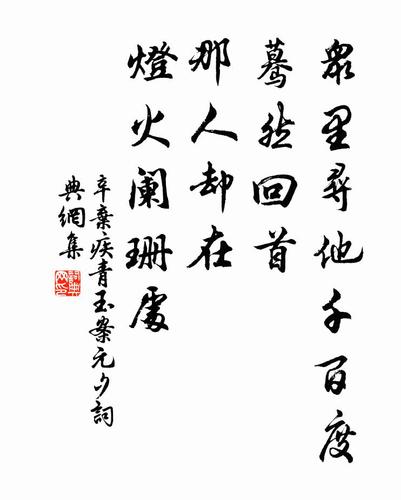 眾里尋他千百度
驀然回首
那人却在
燈火阑珊處
辛棄疾青玉案元夕詞
典網集